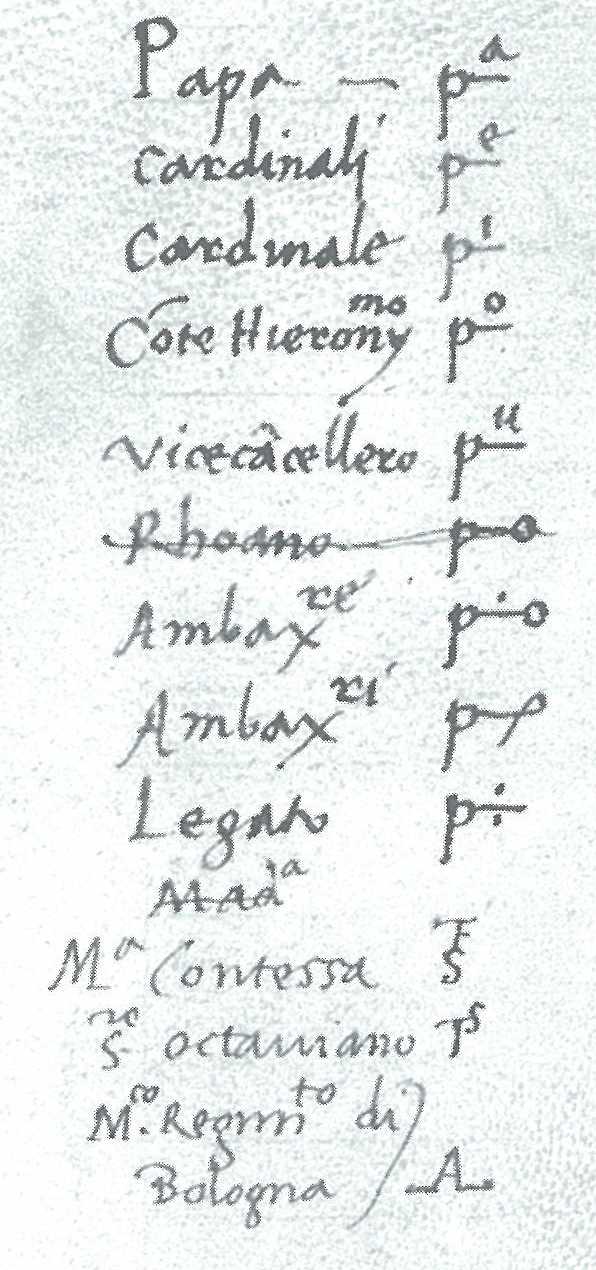 Papa — p–a
Cardinali p–e
Cardinale p–i
Cōte Hieronymo p–o
Vicecācellero p–u
Rhoano
Ambaxre
Ambaxri
Legato p÷
Mada
Ma Contessa
Sre Octauiano Ts
Mco. Regimto di
Bologna A